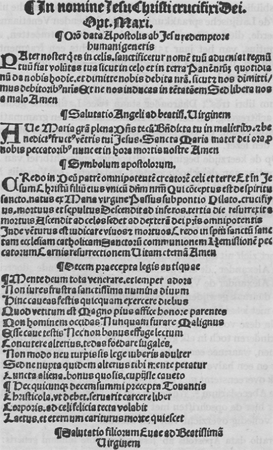 ¶In nomine Jesu Christi crucifixi Dei.
Opt. Mari.
¶Orō data Apostolis ab Jesu redemptore
humani generis
PAter noster q̄ es in celis, sanctificet nomē tuū adueniat regnū
tuū fiat volūtas tua sicut in celo et in terra Panē nr̄ū quotidiā
nū da nobis hodie, et dimitte nobis debita nr̄a, sicut nos dimitti
mus debitoribꝰ nr̄is Et ne nos inducas in tētatōem Sed libera nos
a malo Amen
¶Salutatio Angeli ad beatiss. Virginem
AVe Maria grā plena Dn̄s tecū Bn̄dicta tu in mulieribꝰ, et be
nedictꝰ fructꝰ vētris tui Jesus. Sancta Maria mater dei ora ꝓ
nobis peccatoribꝰ nunc et in hora mortis nostre Amen
¶Symbolum apostolorum.
CRedo in Deū patrē omnipotentē creatorē celi et terre Et in Je
sum Christū filiū eius vnicū dn̄m nr̄m Qui cōceptus est de spiritu
sancto, natus ex Maria virgine Passus sub pontio Pilato, crucifix
us, mortuus et sepultus Descendit ad inferos, tertia die resurrexit a
mortuis Ascendit ad celos sedet ad dexterā dei pr̄is omnipotentis
Inde vēturus est iudicare viuos et mortuos Credo in spm̄ sanctū san
ctam ecclesiam catholicam Sanctorū communionem Remissionē pec
catorum Carnis resurrectionem Vitam eternā Amen
¶Decem praecepta legis antiquae
¶Mente deum tota venerare, et semper adora
Non iures frustra sanctissima numina diuum
Hinc caueas festis quicquam exercere diebus
Quod vetitum est Magno pius affice honore parentes
Non hominem occidas Nunquam furare Malignus
Esse caue testis Nec non bonus effuge lectum
Concutere alterius, tedas foedare iugales,
Non modo neu turpis sis lege iuberis adulter
Sed ne nupta quidem alterius tibi mente petatur
Cuncta aliena, bonus quoslis, cupiisse caueto
¶Hec quicunqꝫ decem summi precepta Tonantis
Christicola, vt debet, seruarit carcere liber
Corporis, ad celi felicia tecta volabit
Laetus, et eternum cariturus morte quiescet
¶Salutatio filiorum Euae ad Beatissimā
Virginem